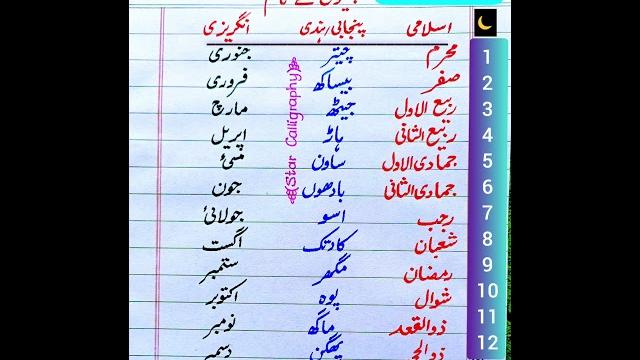 اسلامی پنجابی/ہندی انگریزی
1 محرم چیتر جنوری
2 صفر بیساکھ فروری
3 ربیع الاول جیٹھ مارچ
4 ربیع الثانی ہاڑ اپریل
5 جمادی الاول ساون مئی
6 جمادی الثانی بادھوں جون
7 رجب اسو جولائی
8 شعبان کادتک اگست
9 رمضان مگھر ستمبر
10 شوال پوہ اکتوبر
11 ذوالقعد ماگھ نومبر
12 ذوالحج پھگن دسمبر
(Star Calligraphy)